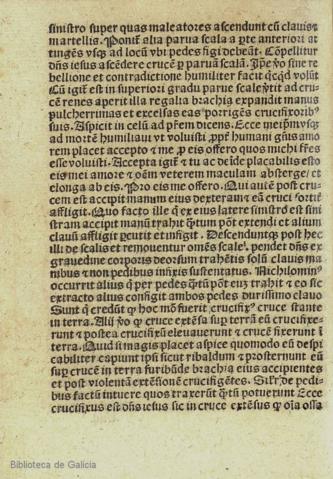 sinistro super quas maleatores ascendunt cū clauis ⁊
martellis. Ponit̄ alia parua scala a ꝑte anteriori at
tingēs vsqꝫ ad locū vbi pedes figi debēāt. Cōpellitur
dn̄s iesus ascēdere crucē ꝑ paruā scalā. Ip̄e ꝟo sine re
bellione et contradictione humiliter facit qcqd volūt
Cū igit̄ est in superiori gradu parue scale ad cru⸗
cē renes aperit illa regalia brachia expandit manus
pulcherrimas et excelsas eas porrigēs crucifixoribꝰ
suis. Aspicit in celū ad pr̄em dicens. Ecce
ad mortē humiliari vt voluisti. humani gn̄is amo
rem placet accepto ⁊ me ꝓ eis offero quos michi fr̄es
esse voluisti. Accepta igit̄ ⁊ tu ac deide placabilis esto
eis mei amore ⁊ oēm veterem maculam absterge/ et
elonga ab eis. Pro eis me offero. Qui autē post cru⸗
cem est accipit manum eius dexteram ⁊ eā cruci fortit̄
affligit. Quo facto ille q̄ ex eius latere sinistro est sini
stram accipit manū trahit q̄tum pōt extendit et alium
clauū affligit ꝑcutit et cōfigit. Descenduntqꝫ post hec
illi de scalis et remouentur om̄es scale. pendet dn̄s ex
grauedine corporis deorsum trahētis solū clauis ma
nibus ⁊ non pedibus infixis sustentatus. Nichilominꝰ
occurrit alius q̄ per pedes q̄tū pōt euꝫ trahit ⁊ eo sic
extracto alius configit ambos pedes durissimo clauo
Sunt q̄ credūt q̄ hoc mō fuerit crucifixꝰ cruce stante
in terra. Alij ꝟo q̄ cruce extēsa suꝑ terrā eū crucifixe⸗
runt ⁊ postea crucifixū eleuauerunt ⁊ crucē fixerunt ī
terra. Quid si magis placet aspice quomodo eū despi
cabiliter capiunt ip̄m sicut ribaldum ⁊ prosternunt eū
suꝑ crucē in terra furibūde brachia eius accipientes
et post violentā extēsionē crucifigētes. Silr̄ de pedi⸗
bus factū intuere quos traxerūt q̄tū potuerunt Ecce
crucifixus est dn̄s iesus sic in cruce extēsus q̄ oīa ossa
Biblioteca de Galicia